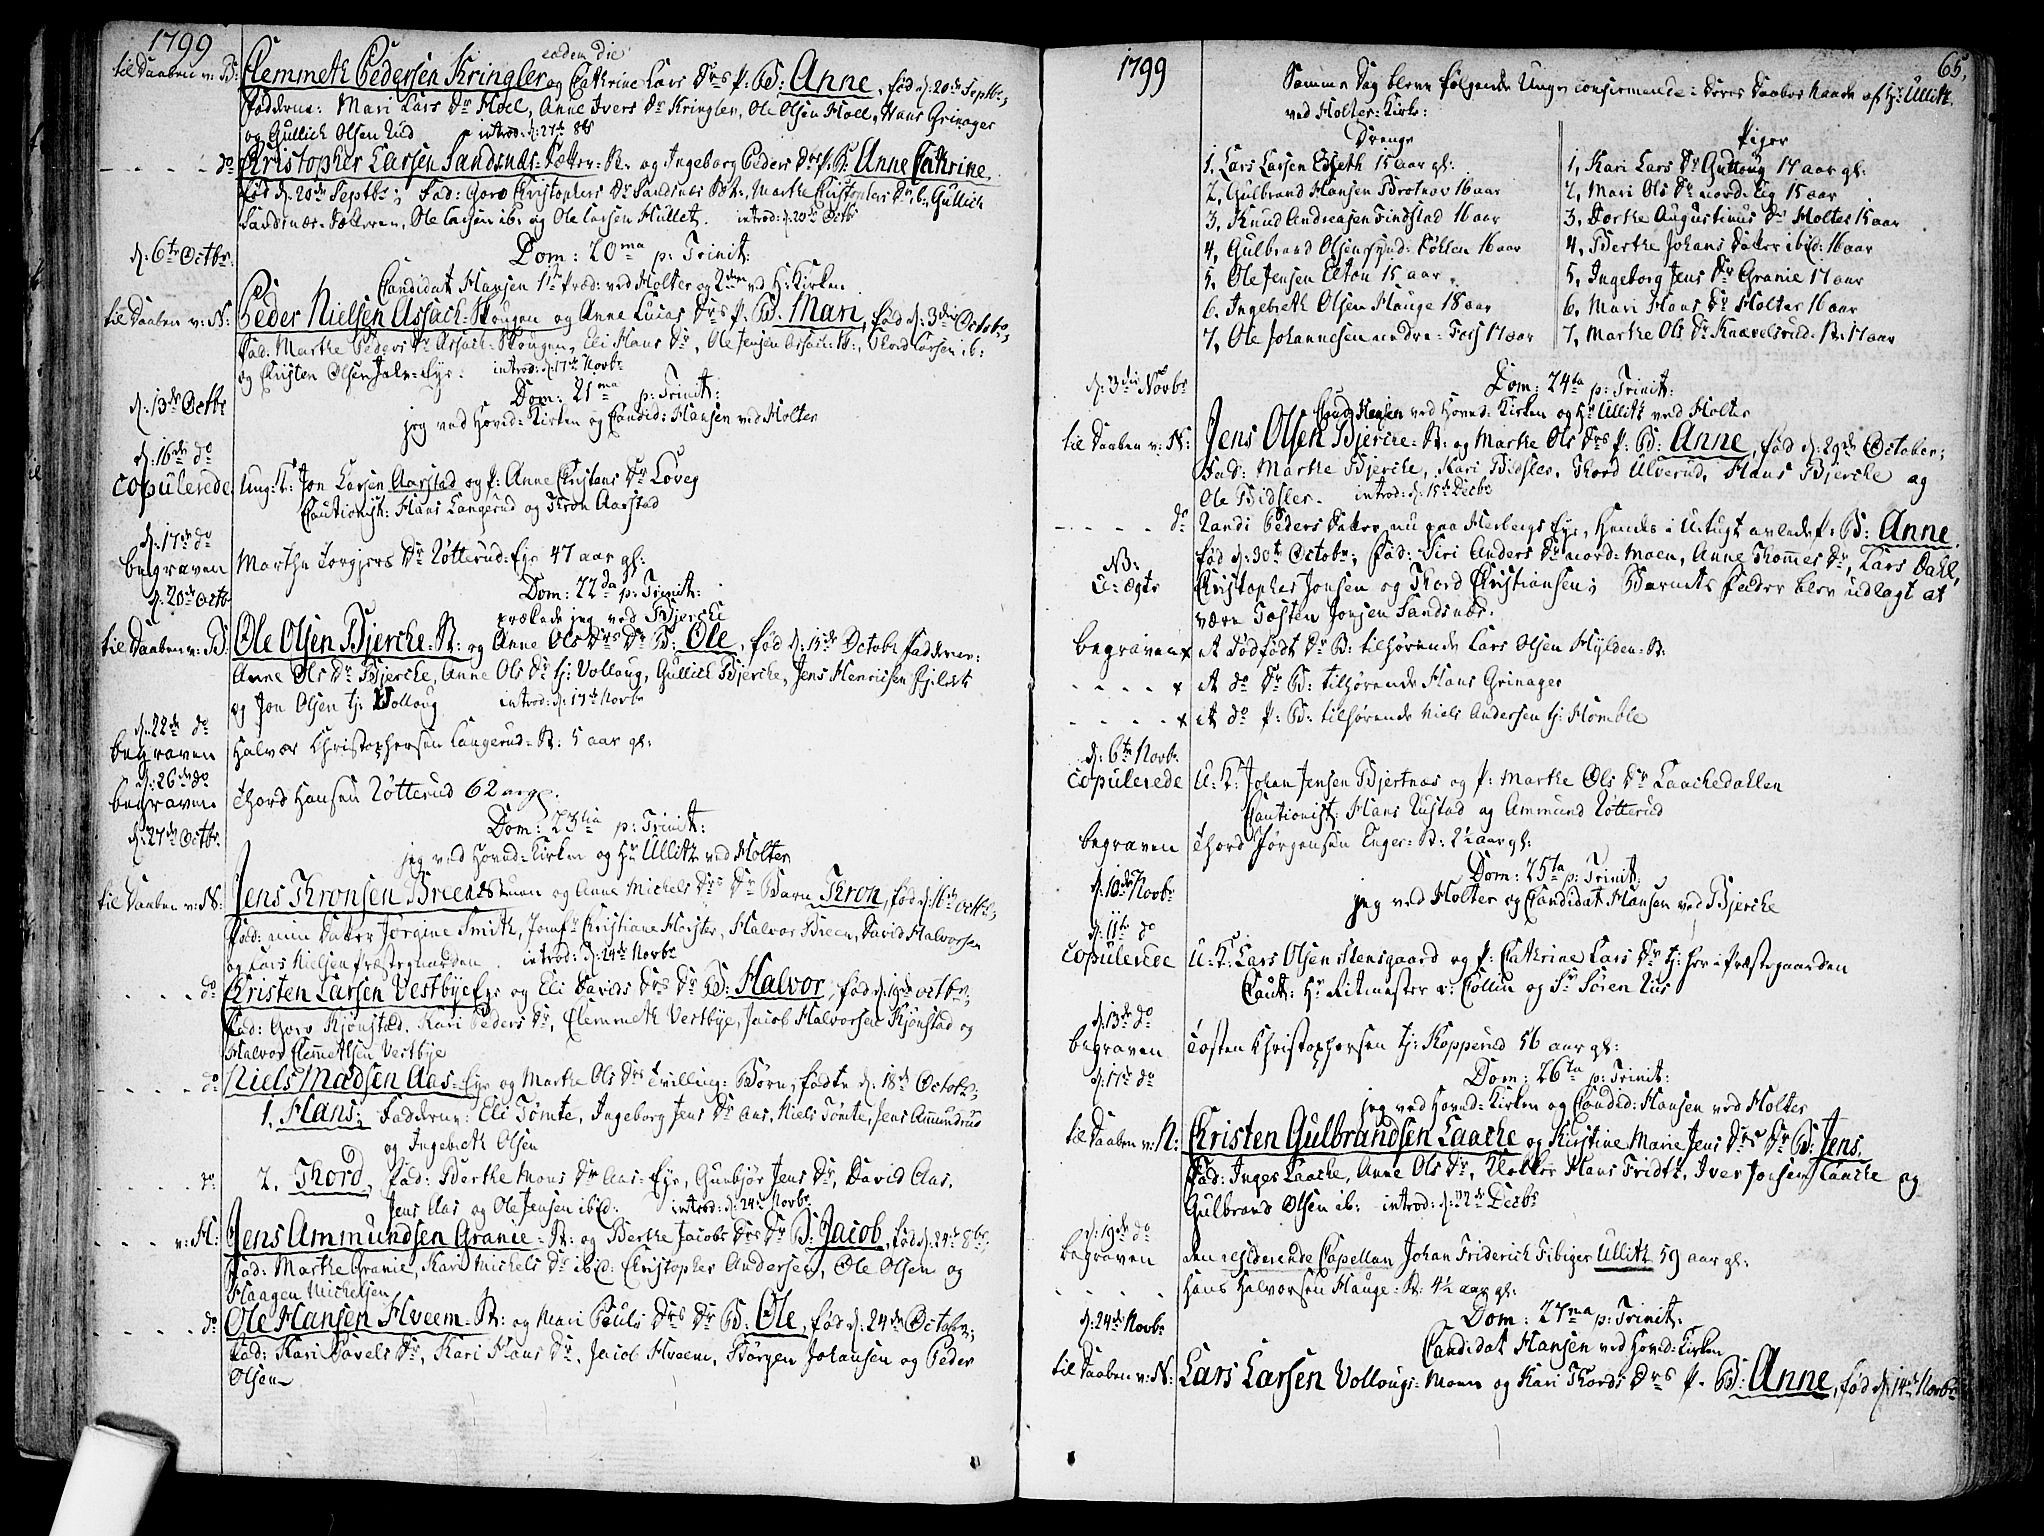 1799
eadem die
til Daaben v: B: Clemmeth Pedersen Kringler og Cathrine Lars Drs P. B: Anne, fød d: 20de Septbr;
Fadderne: Mari Lars Dr Hoel, Anne Ivers Dr Kringler, Ole Olsen Hoel, Hans Grinager
og Gullich Olsen Rud introd: d: 27de 8br
do Kristopher Larsen Sandsnæs-Sæter-St. og Ingeborg Peders Drs P. B: Anne Cathrine
fød d: 20de Septbr; Fad: Goro Christophers Dr Sandsnæs, Marthe Christophers Dr ib: Gullich
Sandsnæs-Sæteren, Ole Larsen ib: og Ole Larsen Hullet. introd: d: 20de Octbr
d: 6te Octbr. Dom: 20ma p: Trinit:
Candidat Hansen 1ste Præd: ved Holter og 2den ved H: Kirken
til Daaben v: N: Peder Nielsen Assach-Skougen og Anne Lucas Drs P. B. Mari, fød d: 3die Octobr;
Fad: Marthe Peders Dr Assach-Skougen, Eli Hans Dr, Ole Jensen Assach-St:, Thord Larsen ib:
og Christen Olsen Eye. introd: d: 17de Novbr
d: 13de Octbr Dom: 21ma p: Trinit:
jeg ved Hovd-Kirken og Candid: Hansen ved Holter
d: 16de do
copulerede Ung: K: Jon Larsen Aarstad og P: Anne Christens Dr Løveg
Cautionist: Hans Langerud og Thron Aarstad
d: 17de do
begraven Marthe Torgjers Dr Røtterud-Eye 47 aar gl:
d: 20de Octb Dom: 22da p: Trinit:
prækede jeg ved Bjerche
til Daaben v: B: Ole Olsen Bjerche-St: og Anne Ols Drs Dr B: Ole, fød d: 15de Octobr Fadderne:
Anne Ols Dr Bjerche, Anne Ols Dr tj: Volloug, Gullich Bjerche, Jens Henrichsen
og Jon Olsen tj: Volloug introd: d: 17de Novbr
d: 22de do
begraven Halvor Christophersen Langerud-St: 5 aar gl:
d: 26de do
begraven Thord Hansen Røtterud 62 aar gl.
d: 27de Octbr. Dom: 23tia p: Trinit:
jeg ved Hovd-Kirken og Hr Ullitz ved Holter
til Daaben v: N: Jens Thronsen Breens Stuen og Anne Michels Drs Dr Barn Thron, fød d: 16de Octbr;
Fad: min Datter Jørgine Smith, Jomfr Christiane Heister, Halvor Breen, David Halvorsen
og Lars Nielsen Præstegaarden. introd: d: 24de Novbr
do Christen Larsen Vestbye Eye og Eli Davids Drs Dr B: Halvor, fød d: 19de Octbr;
Fad: Goro Kjonstad, Kari Peders Dr, Clemmeth Vestbye, Jacob Halvorsen Kjønstad og
Halvor Clemmetsen Vestbye
do Niels Madsen Aas-Eye og Marthe Ols Drs Tvilling-Børn, fødte d: 18de Octobr;
1. Hans; Fadderne: Eli Tømte, Ingeborg Jens Dr Aas, Niels Tømte, Jens Amundrud
og Ingebreth Olsen
do 2. Thord, Fad: Berthe Mons Dr Aas-Eye, Gunbjør Jens Dr, David Aas,
Jens Aas og Ole Jensen ibid. introd: d: 24de Novbr
v: H: Jens Ammundsen Granie-St: og Berthe Jacobs Drs Dr B: Jacob, fød d: 24de 8br;
Fad: Marthe Granie, Kari Michels Dr ibid: Christopher Andersen, Ole Olsen og
Haagen Michelsen
do Ole Hansen Hveem-St: og Mari Pouls Drs Dr B: Ole, fød d: 24de Octobr;
Fad: Kari Povels Dr, Kari Hans Dr, Jacob Hveem, Børgen Johansen og Peder
Olsen
1799
65.
Samme Dag bleve følgende Unge confirmerede: Deres Daabes Naade af Hr Ullitz
ved Holter-Kirke:
Drenge
1. Lars Larsen Edseth 15 aar gl:
2, Gulbrand Hansen Brotnov 16 aar
3, Knud Andreasen Findstad 16 aar
4, Gulbrand Olsen synd: Løksen 16 aar
5. Ole Jensen Elton 15 aar
6. Ingebreth Olsen Hauge 18 aar
7, Ole Johannesen nedre-Foss 17 aar
Piger
1, Kari Lars Dr Guttoug 17 aar gl:
2, Mari Ols Dr nord-Eig 15 aar
3, Dorthe Augustinus Dr Holter 15 aar
4, Berthe Johans Datter ibid: 16 aar
5, Ingeborg Jens Dr Granie 17 aar
6, Mari Hans Dr Holter 16 aar
7, Marthe Ols Dr Knævelsrud-St: 17 aar
d: 3die Novbr Dom: 24ta p: Trinit:
Cand. Hansen ved Hovd-Kirken og Hr Ullitz ved Holter
til Daaben v: N: Jens Olsen Bjerche-St: og Marthe Ols Drs P: B: Anne, fød d: 29de October;
Fad: Marthe Bjerche, Kari Bidsler, Thord Ulverud, Hans Bjerche og
Ole Bidsler. introd: d: 15de Decbr
do Randi Peders Datter nu paa Herbergs Eye, Hendes i Utugt avlede P. B: Anne,
NB: fød d: 30te Octobr; Fad: Siri Anders Dr nord-Moen, Anne Thomes Dr, Lars Dahl,
U: Ægte Christopher Jonsen og Thord Christiansen; Barnets Fader blev udlagt at
være Tosten Jonsen Sandsnæs.
begraven x Et dødfødt Dr B: tilhørende Lars Olsen Hylden-St:
x Et do Dr B: tilhørende Hans Grinager
x et do P: B: tilhørende Niels Andersen tj: Homble
d: 6te Novbr
copulerede U: K: Johan Jensen Bjertnæs og P: Marthe Ols Dr Laachedahlen
Cautionist: Hans Rustad og Ammund Røtterud
begraven Thord Jørgensen Enger-St: 2½ aar gl:
d: 10de Novbr Dom: 25ta p: Trinit:
jeg ved Holter og Candidat Hansen ved Bjerche
d: 11te do
copulerede U: K: Lars Olsen Stensgaard og P: Cathrine Lars Dr tj: her i Præstegaarden
Caut: Hr Ritmester v: Collin og Sr Søren Riis
d: 13de do
begraven Tosten Christophersen tj: Kopperud 56 aar gl:
d: 17de do Dom: 26ta p: Trinit:
jeg ved Hovd-Kirken og Candid: Hansen ved Holter
til Daaben v: N: Christen Gulbrandsen Laache og Kirstine Marie Jens Drs Dr B: Jens,
Fad: Inger Laache, Anne Ols Dr, Klokker Hans Fridtz, Iver Jonsen Laache og
Gulbrand Olsen ib: introd: d: 22de Decbr
d: 19de do
begraven den residerende Capellan Johan Friderich Fibiger Ullitz 59 aar gl:
Hans Halvorsen Hauge-St: 4½ aar gl:
d: 24de Novbr Dom: 27ma p: Trinit:
Candidat Hansen ved Hovd-Kirken
til Daaben v: N: Lars Larsen Vollougs-Moen og Kari Thords Drs P. B: Anne, fød d: 14de Novbr